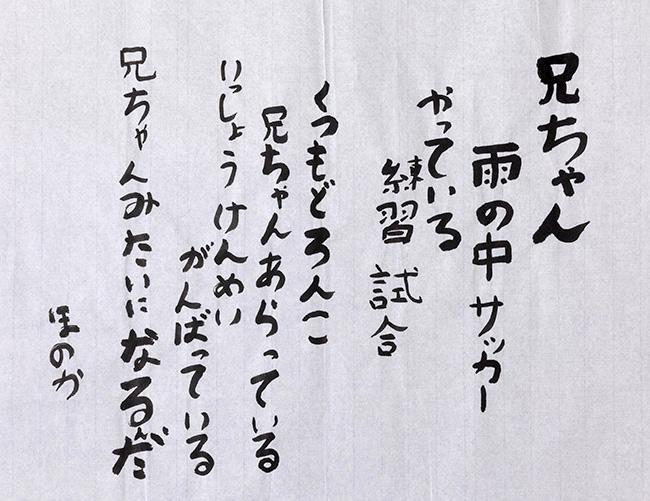 兄ちゃん
雨の中サッカー
やっている
練習試合
くつもどろんこ
兄ちゃんあらっている
いっしょうけんめい
がんばっている
兄ちゃんみたいになるんだ
ほのか